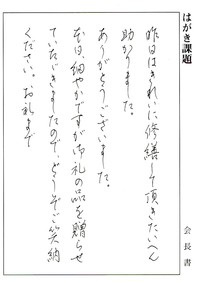 はがき課題
昨日はきれいに修繕して頂きたいへん
助かりました。
ありがとうございました。
本日細やかですが御礼の品を贈らせ
ていただきましたので、どうぞご笑納
ください。お礼まで
会長書